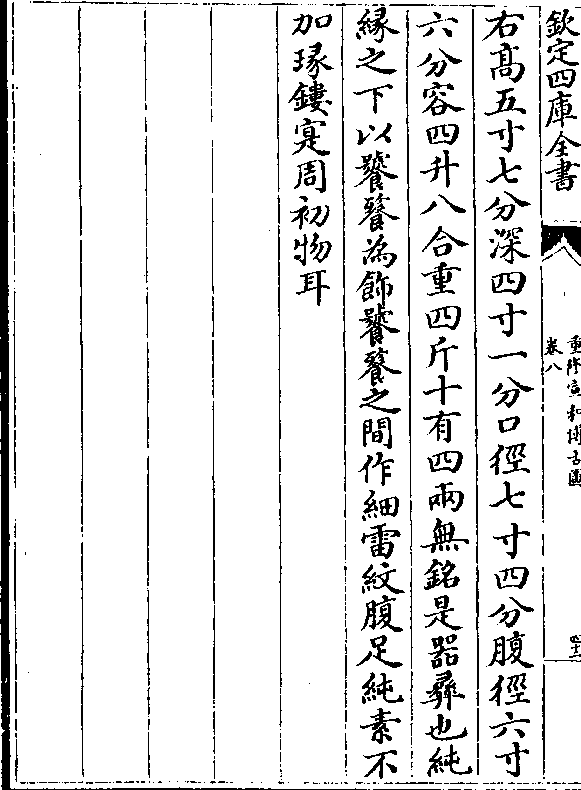 欽定四庫全書
重修宣和博古圖
卷八
右髙五寸七分深四寸一分口徑七寸四分腹徑六寸
六分容四升八合重四斤十有四兩無銘是器彛也純
縁之下以饕餮為飾饕餮之間作細雷紋腹足純素不
加瑑鏤寔周初物耳